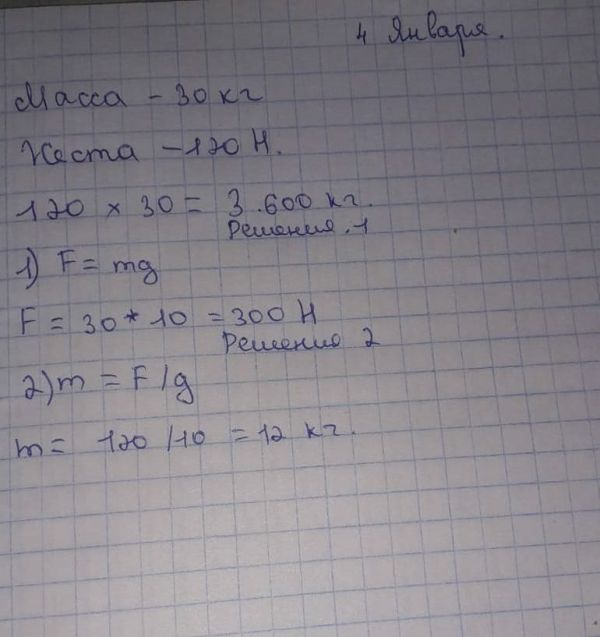 4 Января.
Масса - 30 кг
Жеста - 120 Н.
120 × 30 = 3.600 кг.
Решения .1
1) F = mg
F = 30 * 10 = 300 Н
Решение 2
2) m = F/g
m = 120 /10 = 12 кг.